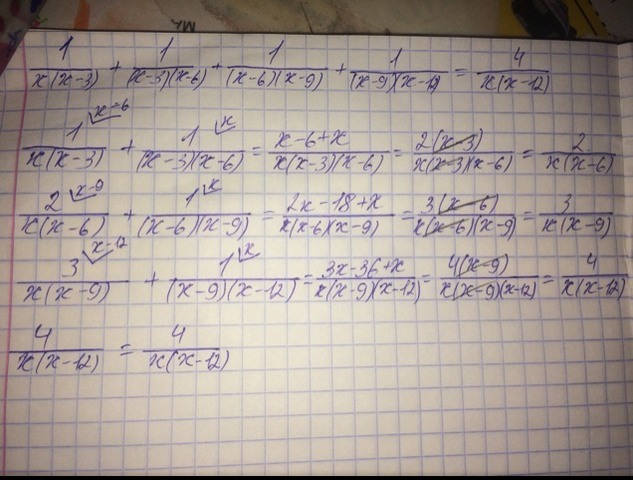 1/(x(x-3)) + 1/((x-3)(x-6)) + 1/((x-6)(x-9)) + 1/((x-9)(x-12)) = 4/(x(x-12))
1^(x-6)/(x(x-3)) + 1^x/((x-3)(x-6)) = (x-6+x)/(x(x-3)(x-6)) = 2(x-3)/(x(x-3)(x-6)) = 2/(x(x-6))
2^(x-9)/(x(x-6)) + 1^x/((x-6)(x-9)) = (2x-18+x)/(x(x-6)(x-9)) = 3(x-6)/(x(x-6)(x-9)) = 3/(x(x-9))
3^(x-12)/(x(x-9)) + 1^x/((x-9)(x-12)) = (3x-36+x)/(x(x-9)(x-12)) = 4(x-9)/(x(x-9)(x-12)) = 4/(x(x-12))
4/(x(x-12)) = 4/(x(x-12))